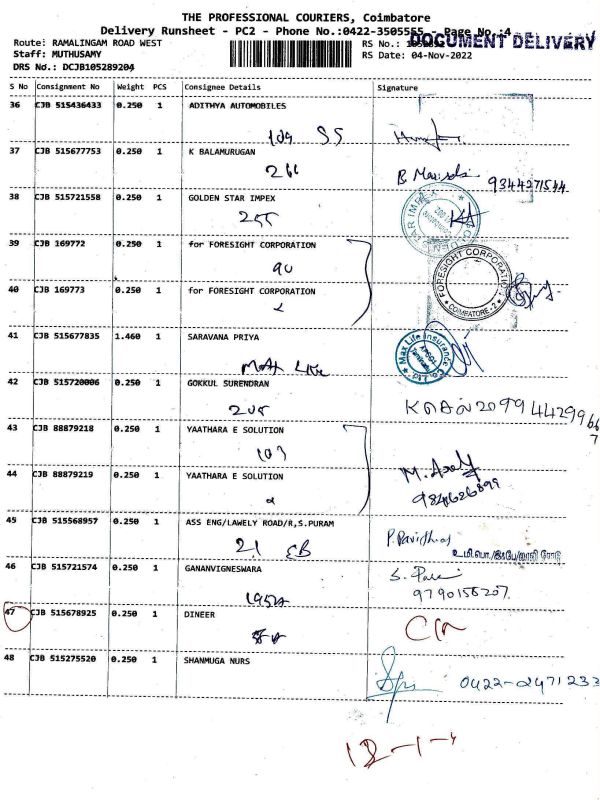 THE PROFESSIONAL COURIERS, Coimbatore
Delivery Runsheet - PC2 - Phone No.:0422-3505555 - Page No.:4
DOCUMENT DELIVERY
Route: RAMALINGAM ROAD WEST
RS No.:
Staff: MUTHUSAMY
RS Date: 04-Nov-2022
DRS No.: DCJB105289204
S No Consignment No Weight PCS Consignee Details Signature
36 CJB 515436433 0.250 1 ADITHYA AUTOMOBILES
109 SS
37 CJB 515677753 0.250 1 K BALAMURUGAN
266
9344271544
38 CJB 515721558 0.250 1 GOLDEN STAR IMPEX
255
39 CJB 169772 0.250 1 for FORESIGHT CORPORATION
90
FORESIGHT CORPORATION
COIMBATORE - 2
40 CJB 169773 0.250 1 for FORESIGHT CORPORATION
41 CJB 515677835 1.460 1 SARAVANA PRIYA
Max Life
Max Life Insurance Co. Ltd
42 CJB 515720006 0.250 1 GOKKUL SURENDRAN
205
43 CJB 88879218 0.250 1 YAATHARA E SOLUTION
103
44 CJB 88879219 0.250 1 YAATHARA E SOLUTION
45 CJB 515568957 0.250 1 ASS ENG/LAWELY ROAD/R,S.PURAM
21 EB
46 CJB 515721574 0.250 1 GANANVIGNESWARA
195A
9790156207
47 CJB 515678925 0.250 1 DINEER
48 CJB 515275520 0.250 1 SHANMUGA NURS
0422-2471233
12-1-4